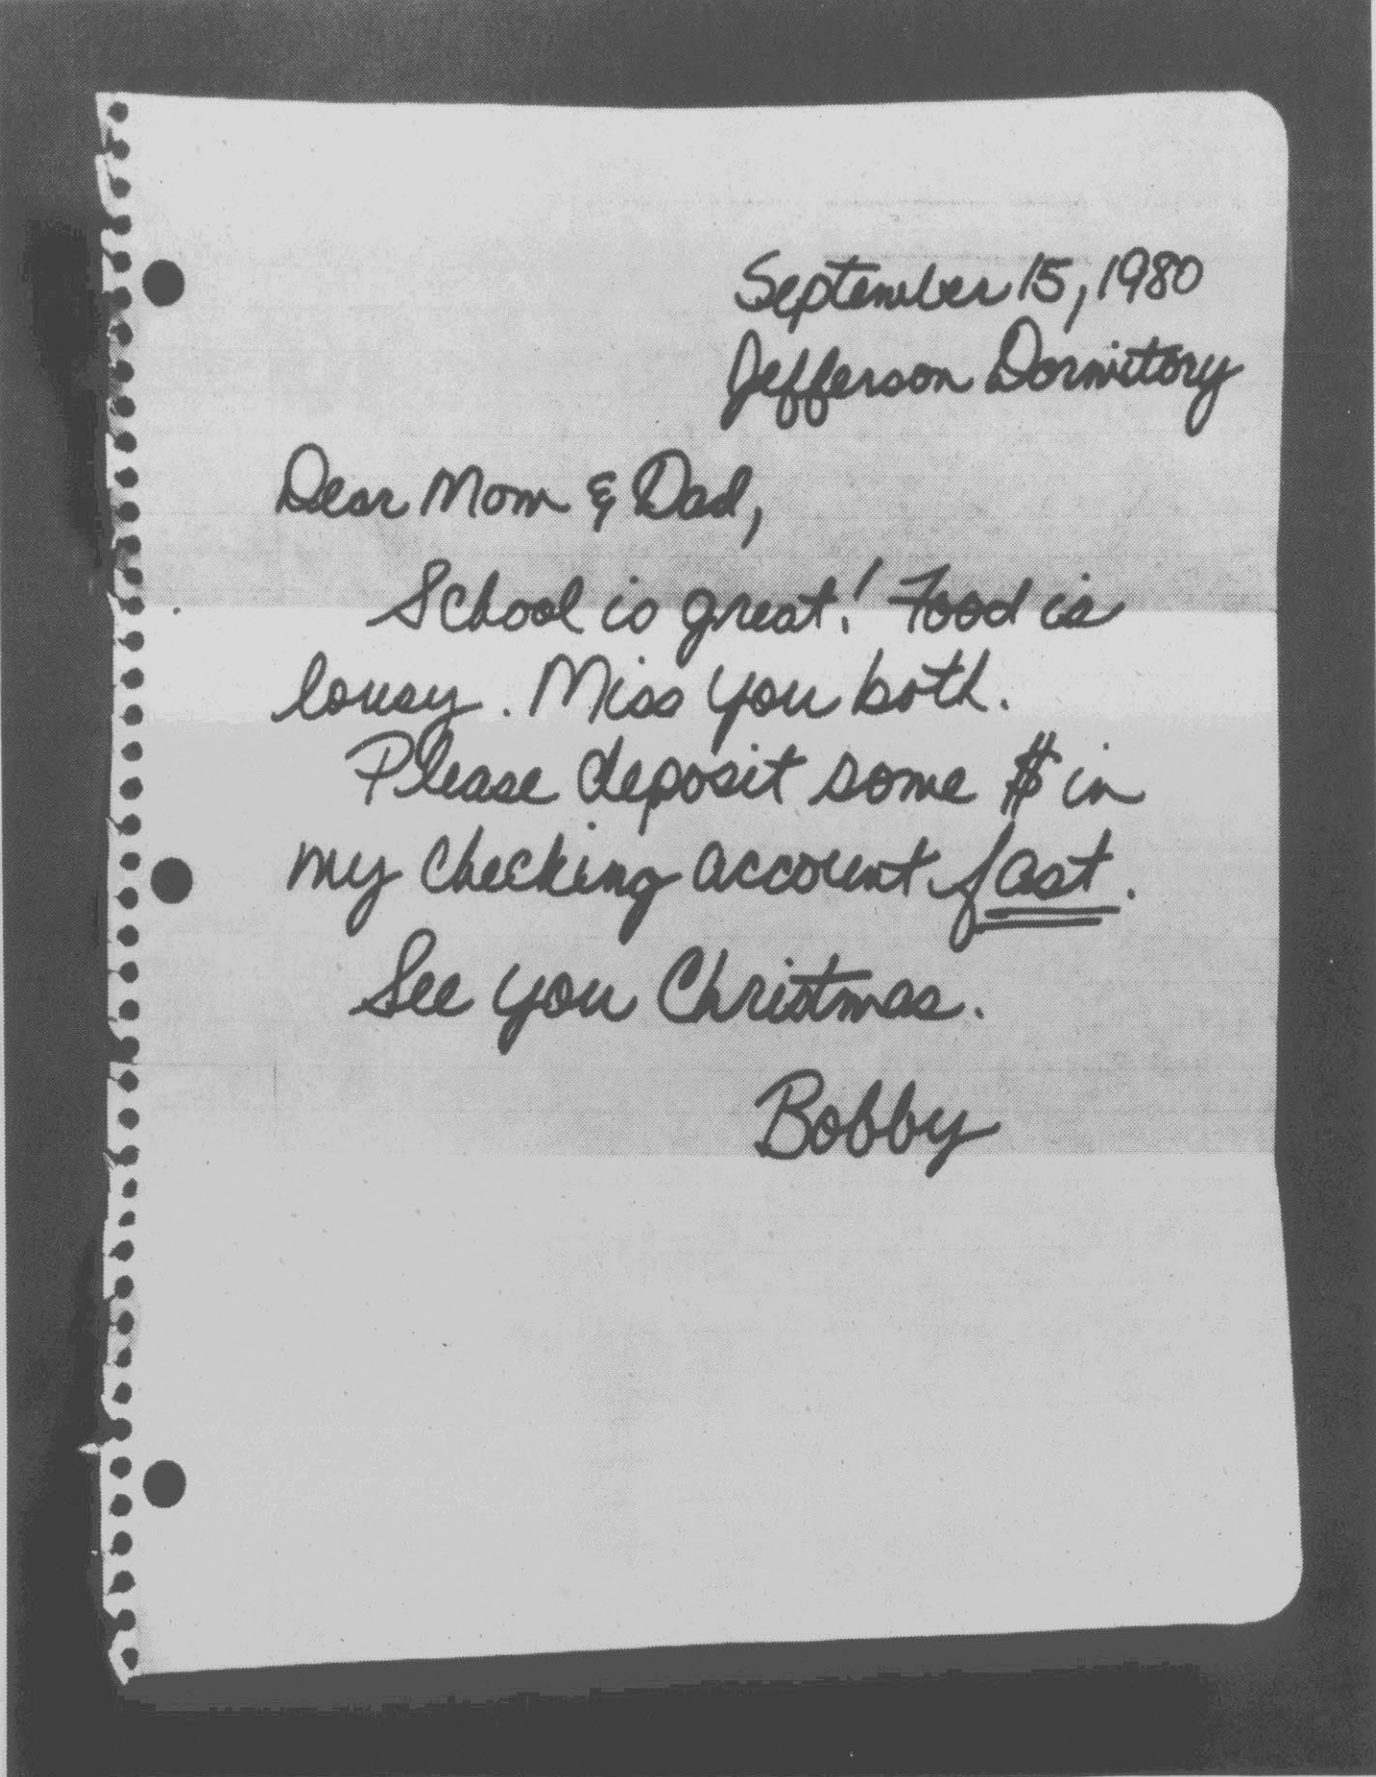 September 15, 1980
Jefferson Dormitory
Dear Mom & Dad,
School is great! Food is
lousy. Miss you both.
Please deposit some $ in
my checking account fast.
See you Christmas.
Bobby